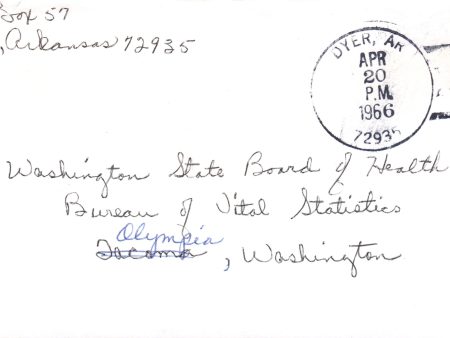 Box 57
, Arkansas 72935
DYER, AR
APR
20
P.M.
1966
72935
Washington State Board of Health
Bureau of Vital Statistics
Olympia
Tacoma, Washington